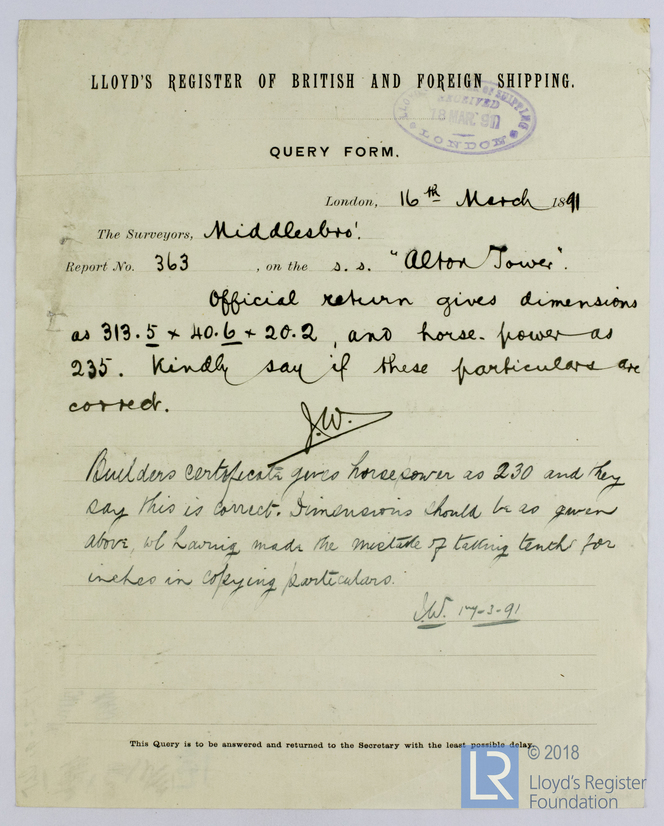 LLOYD'S REGISTER OF BRITISH AND FOREIGN SHIPPING.
LLOYD'S REGISTER OF SHIPPING
RECEIVED
18 MAR 91
LONDON
QUERY FORM.
London, 16th March 1891
The Surveyors, Middlesbro'.
Report No. 363, on the s. s. "Alton Tower".
Official return gives dimensions
as 313.5 x 40.6 x 20.2, and horse-power as
235. Kindly say if these particulars are
correct.
J.W.
Builders certificate gives horsepower as 230 and they
say this is correct. Dimensions should be as given
above, we having made the mistake of taking tenths for
inches in copying particulars.
J.W. 17-3-91
This Query is to be answered and returned to the Secretary with the least possible delay.
LR
© 2018
Lloyd's Register
Foundation